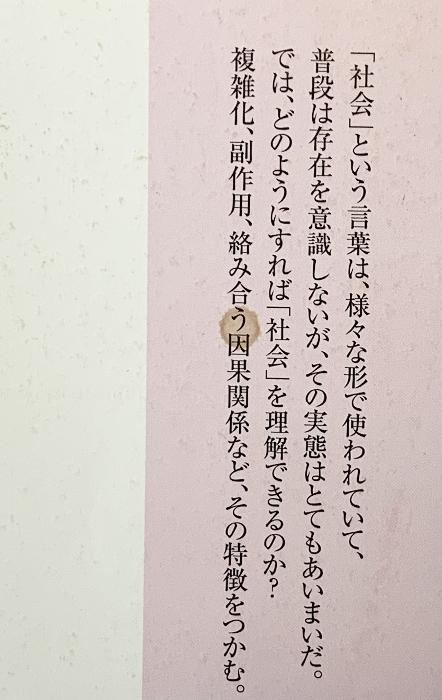 「社会」という言葉は、様々な形で使われていて、
普段は存在を意識しないが、その実態はとてもあいまいだ。
では、どのようにすれば「社会」を理解できるのか?
複雑化、副作用、絡み合う因果関係など、その特徴をつかむ。